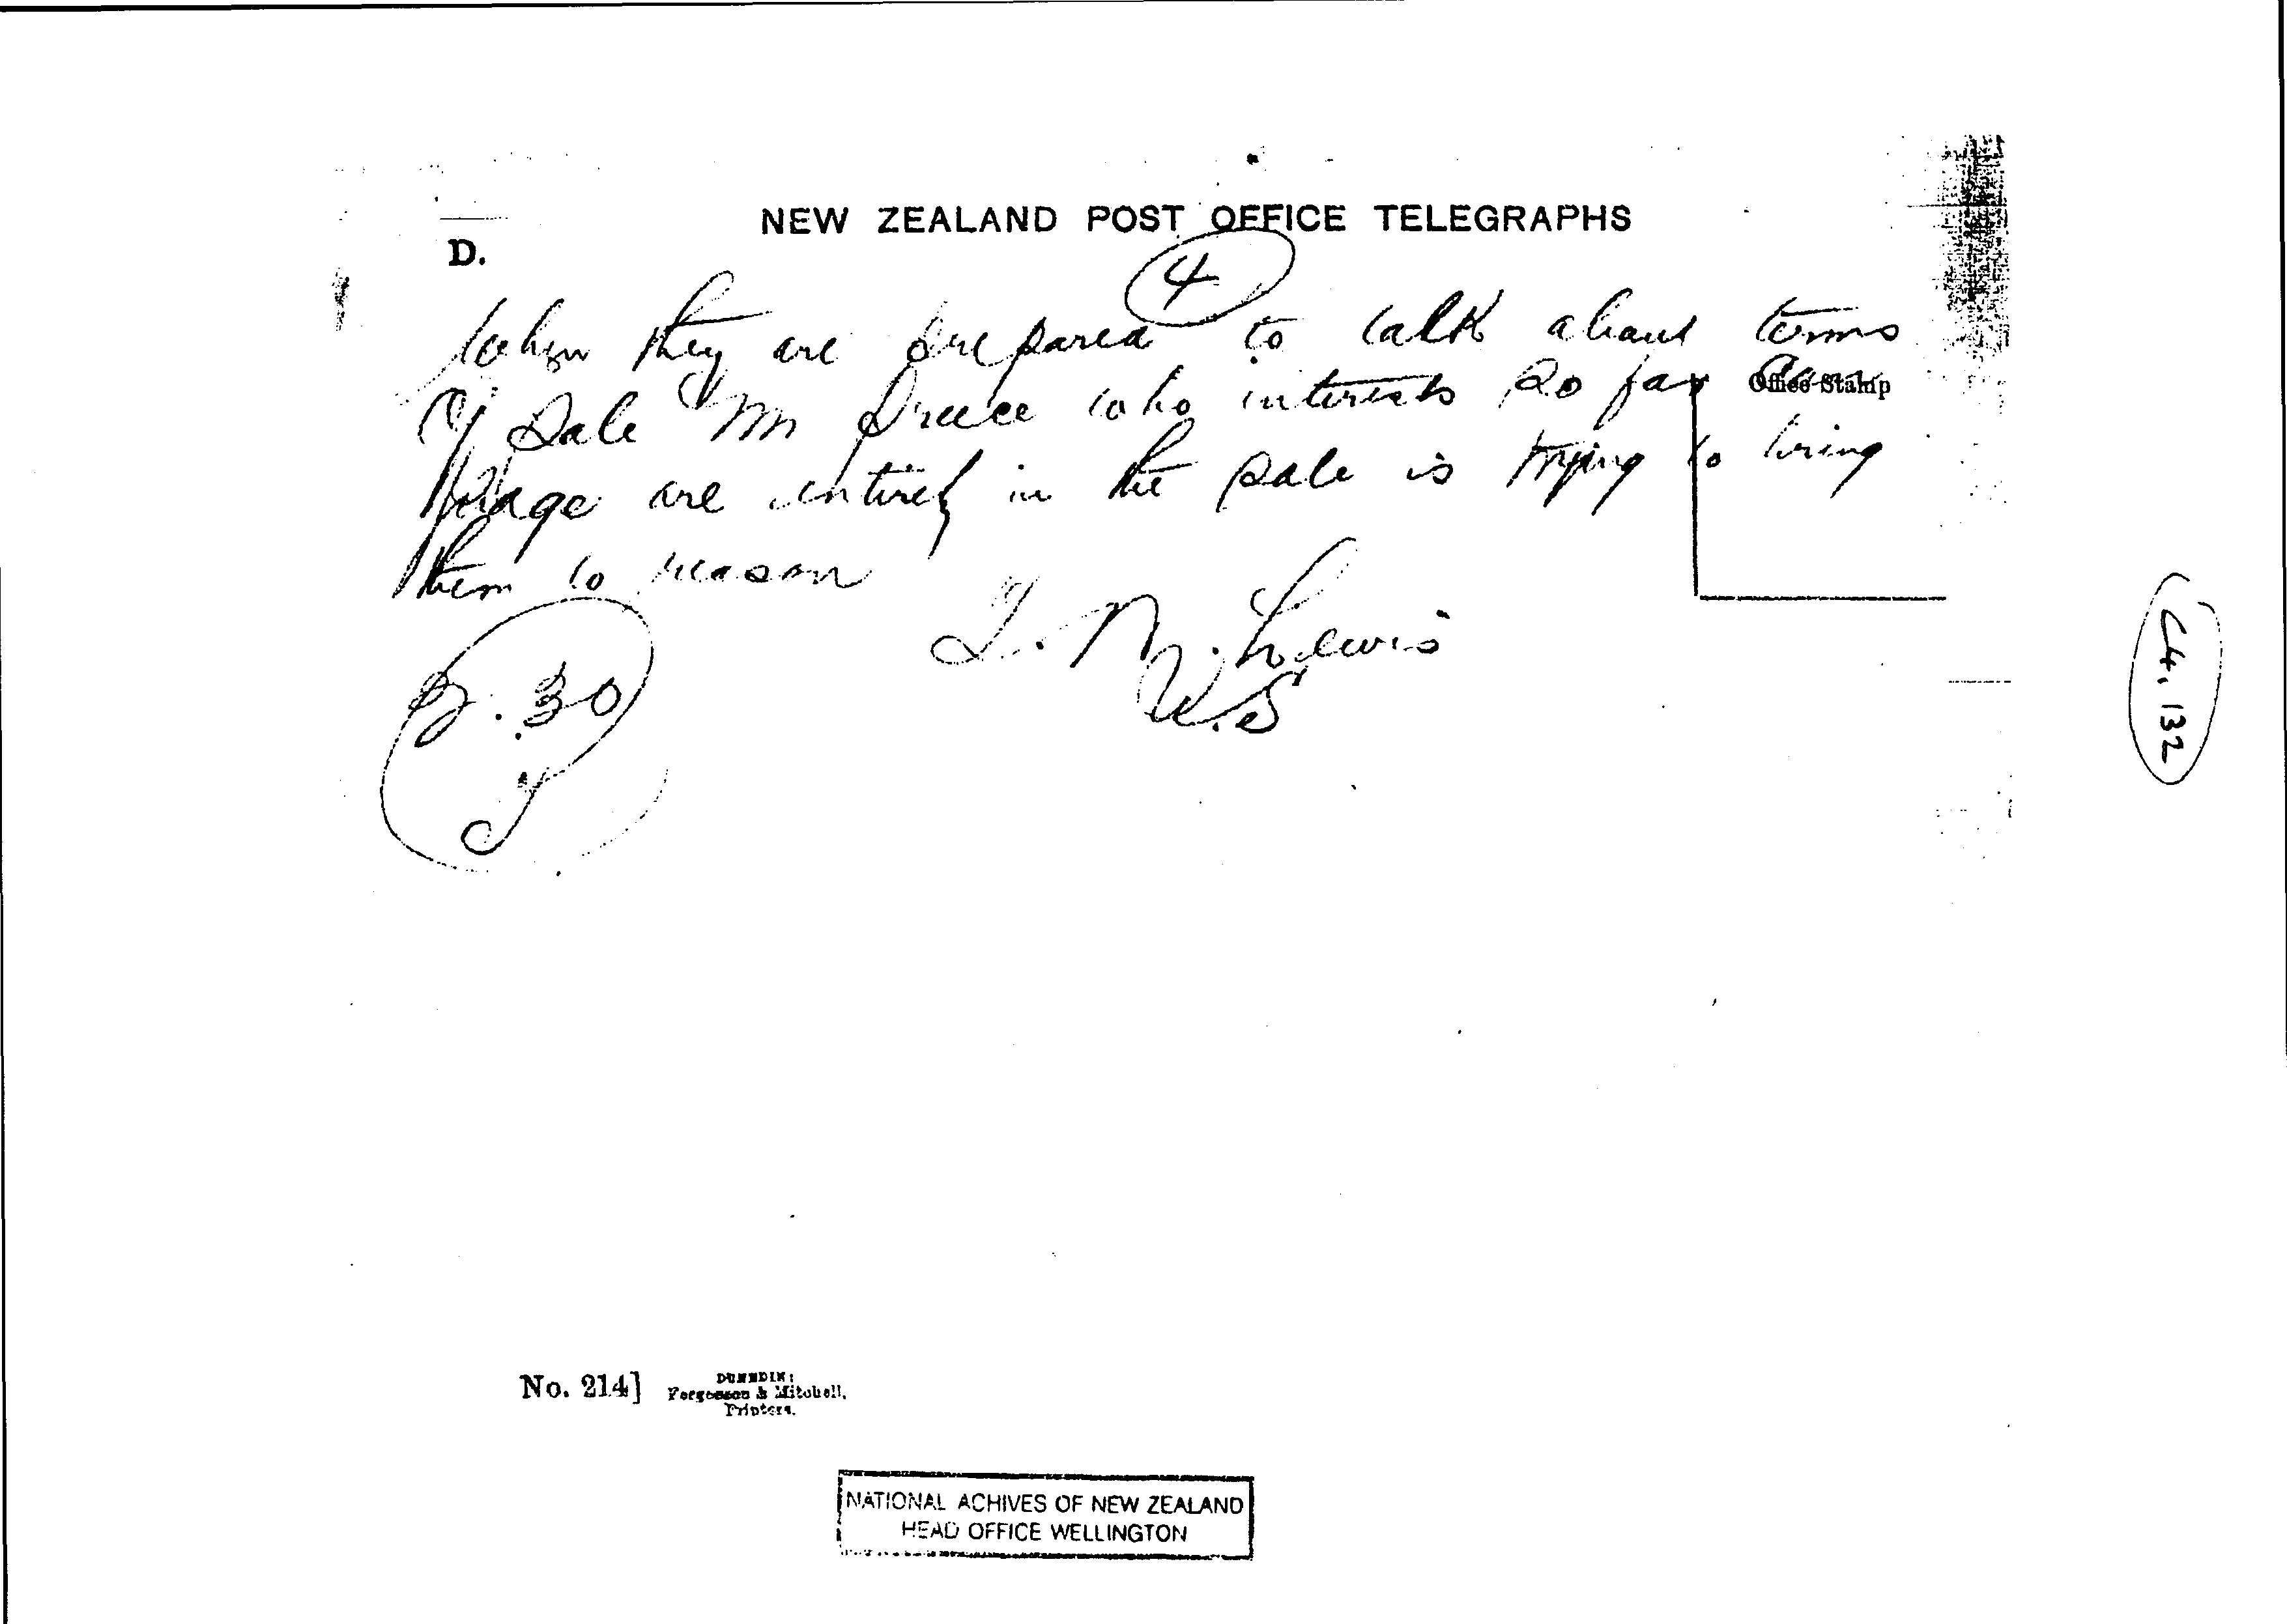 NEW ZEALAND POST OFFICE TELEGRAPHS
D.
4
When they are prepared to talk about terms
Office Stamp
of Sale Mr Preece who interests so far
are entirely in the sale is trying to bring
them to reason
T. N. Lewis
W.S
.30
C4, 132
No. 214]
DUNEDIN:
Fergusson & Mitchell,
Printers.
NATIONAL ACHIVES OF NEW ZEALAND
HEAD OFFICE WELLINGTON